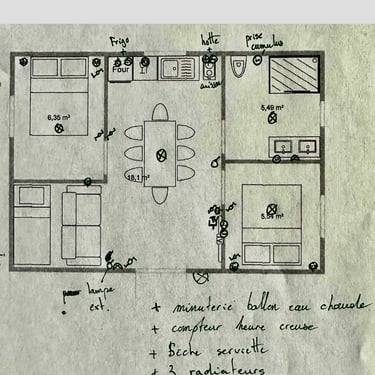 Frigo
hotte
prise
cumulus
Four
6,35 m²
5,49 m²
18,1 m²
lampe
ext.
+ minuterie ballon eau chaude
+ compteur heure creuse
+ Sèche serviette
+ 3 radiateurs